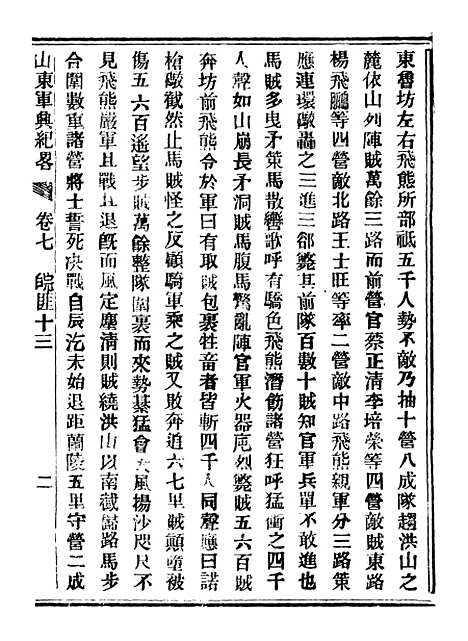 東魯坊左右飛熊所部祗五千人勢不敵乃抽十營八成隊趨洪山之
麓依山列陣賊萬餘三路而前營官蔡正清李培榮等四營敵賊東路
楊飛鵬等四營敵北路王士旺等率二營敵中路飛熊親軍分三路策
應連環敲轟之三進三郤斃其前隊百數十賊知官軍兵單不敢進也
馬賊多曳矛策馬散轡歌呼有驕色飛熊潛飭諸營狂呼猛衝之四千
人聲如山崩長矛洞賊馬腹馬驚亂陣官軍火器庀烈斃賊五六百賊
奔坊前飛熊令於軍曰有取賊包裹牲畜者皆斬四千人同聲應曰諾
槍敲截然止馬賊怪之反顧騎軍乘之賊又敗奔追六七里賊顛墮被
傷五六百遙望步賊萬餘整隊圍裹而來勢綦猛會大風楊沙咫尺不
見飛熊嚴軍且戰且退旣而風定塵清則賊繞洪山以南截歸路馬步
合圍數重諸營將士誓死決戰自辰汔未始退距蘭陵五里守營二成
山東軍興紀畧 卷七 皖匪十三 二